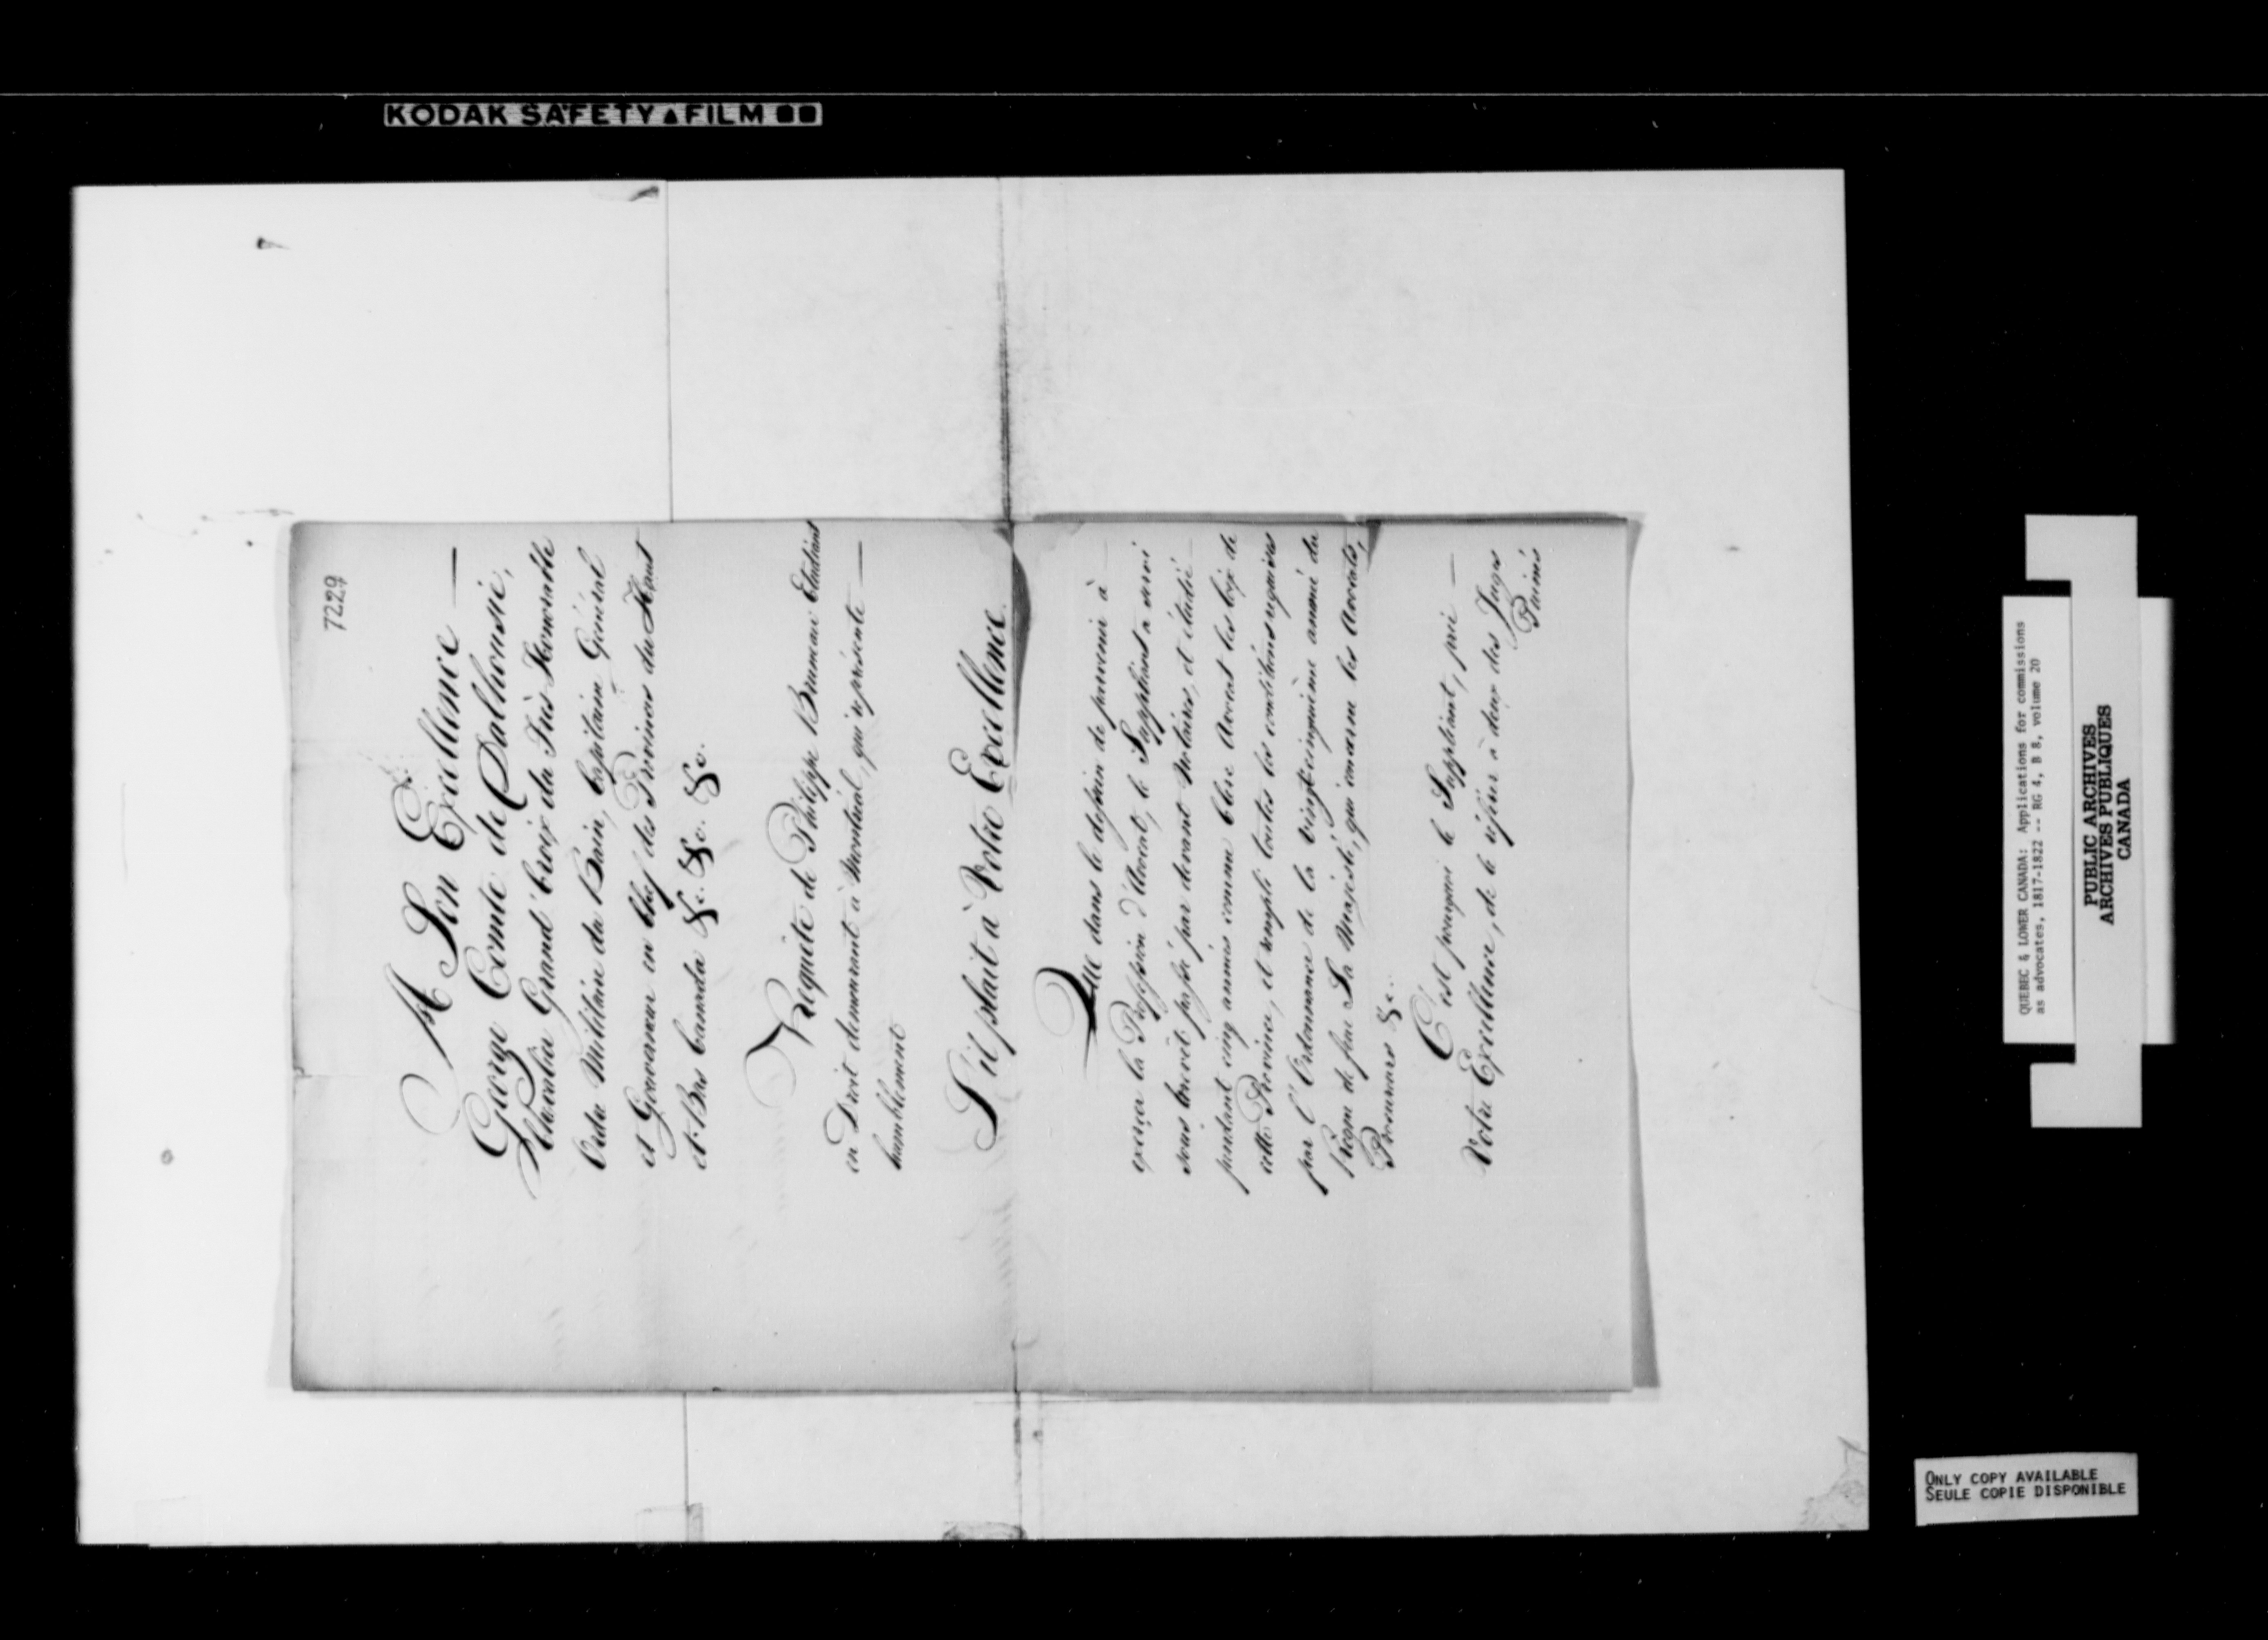 KODAK SAFETY FILM
7229
A Son Excellence
George Comte de Dalhousie,
Chevalier Grand' Croix du Très Honorable
Ordre Militaire du Bain, Capitaine Général
et Gouverneur en Chef des Provinces du Haut
et Bas Canada &c. &c. &c.
Requête de Philippe Bruneau Etudiant
en Droit demeurant à Montréal, qui représente
humblement
S'il plait à Votre Excellence.
Que dans le dessein de parvenir à
exercer la Profession d'Avocat, le Suppliant a servi
sous brevêt passé par devant Notaires, et étudié
pendant cinq années comme Clerc Avocat les loix de
cette Province, et rempli toutes les conditions requises
par l'Ordonnance de la vingt cinquième année du
Regne de feue Sa Majesté, qui concerne les Avocats,
Procureurs &c.
C'est pourquoi le Suppliant, prie
Votre Excellence, de le référer à deux des Juges
Puinés
QUEBEC & LOWER CANADA: Applications for commissions
as advocates, 1817-1822 -- RG 4, B 8, volume 20
PUBLIC ARCHIVES
ARCHIVES PUBLIQUES
CANADA
ONLY COPY AVAILABLE
SEULE COPIE DISPONIBLE